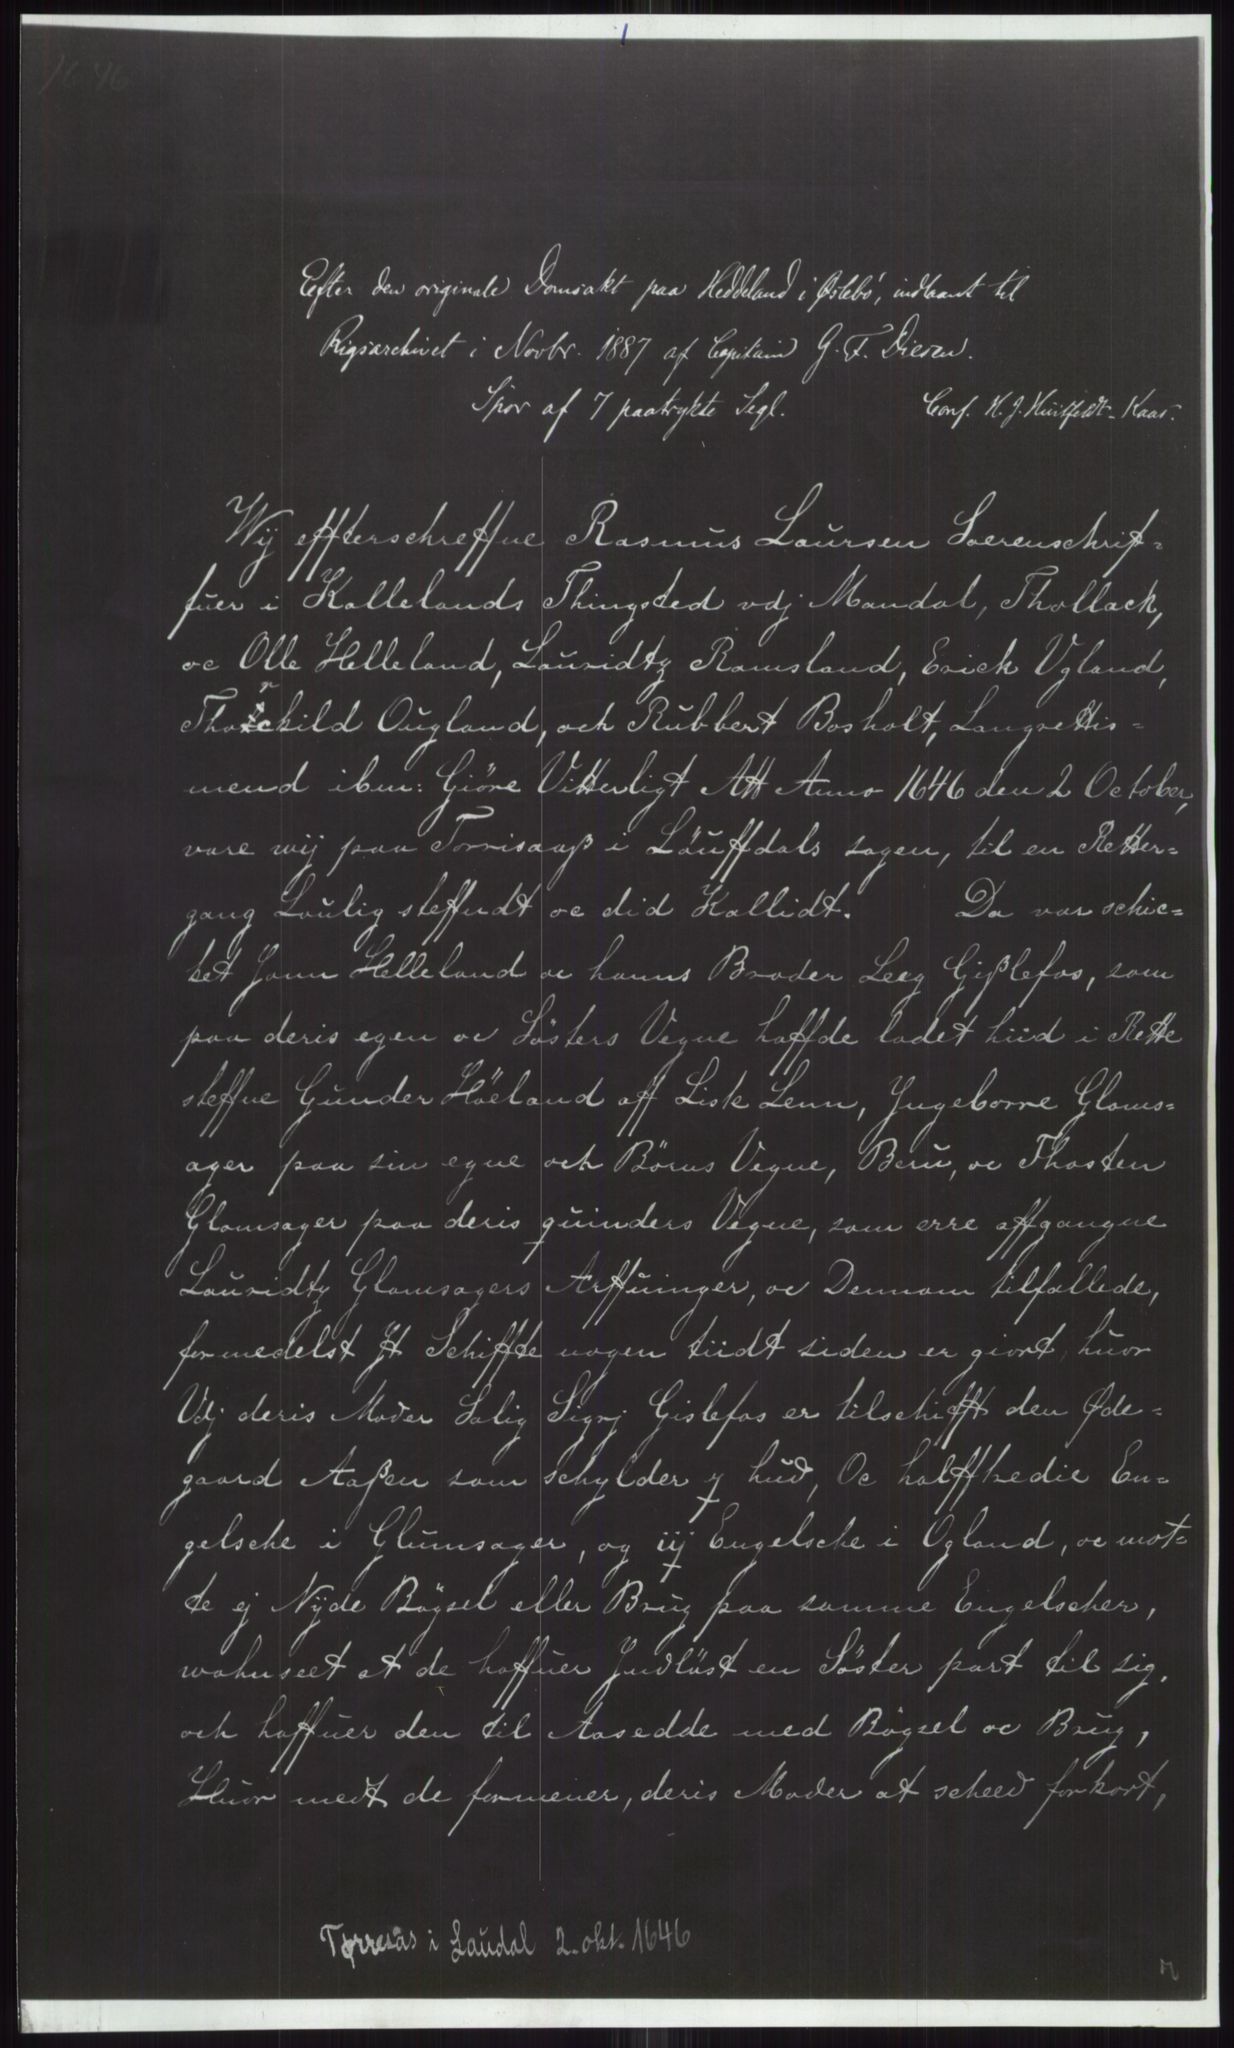 1646
Efter den originale Domsakt paa Heddeland i Øslebö, indlaant til
Rigsarchivet i Novbr. 1887 af Capitain G. F. Diesen.
Spor af 7 paatrykte Segl. Conf. H. J. Huitfeldt-Kaas.
Wij effterschreffne Rasmus Laursen Soerenschrif=
fuer i Hallelands Thingsted vdj Mandal, Thollack,
oc Olle Helleland, Lauridtz Ramsland, Erick Vgland,
Thorckild Ougland, och Rubbert Bosholt, Laugrettis=
mend ibm: Giöre Vitterligt Att Anno 1646 den 2 October,
vare wij paa Torrisaaß i Löuffdals sogen, til en Retter=
gang Loulig steffndt oc did Kallidt. Da var schic=
ket Jonn Helleland oc hanns Broder Leeg Gißlefos, som
paa deris egen oc Sösters Vegne haffde ladet hiid i Rette
steffne Gunder Höeland aff Liste Lenn, Jngeborre Gloms=
ager paa sin egne och Börns Vegne, Beru, oc Thosten
Glomsager paa deris quinders Vegne, som erre affgangne
Lauridtz Glomsagers Arffuinger, oc Dennom tilfallede,
formedelst Jt Schiffte nogen tiidt siden er giort, huor
Vdj deris Moder Salig Sigrj Gislefos er tilschifft den Øde=
gaard Aaßen som schylder j hud, Oc halfftredie En=
gelsche i Glumsager, og iij Engelsche i Ogland, oc mot=
te ej Nÿde Bögsel eller Brug paa samme Engelscher,
wahnseet at de haffuer Jndlöst en Söster part til sig,
och haffuer den til Aasedde med Bögsel oc Brug,
Huor medt de formener, deris Moder at scheed forkort,
Tørresås i Laudal 2. okt. 1646